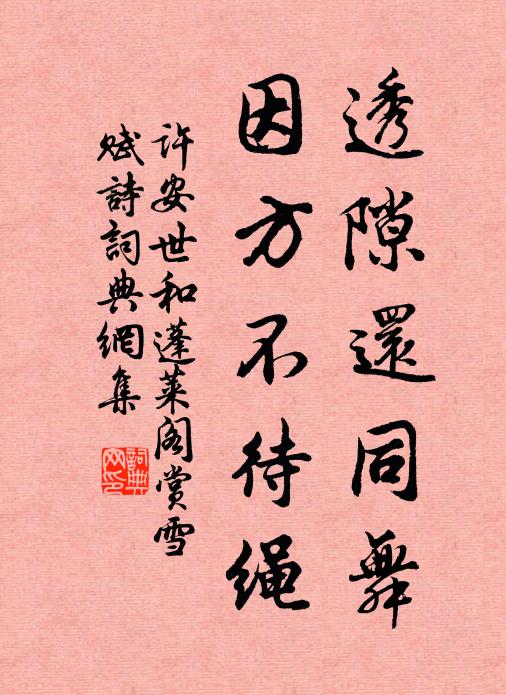 透隙還同舞
因方不待绳
許安世和蓬萊阁賞雪
賦詩詞典網集
詞典网印